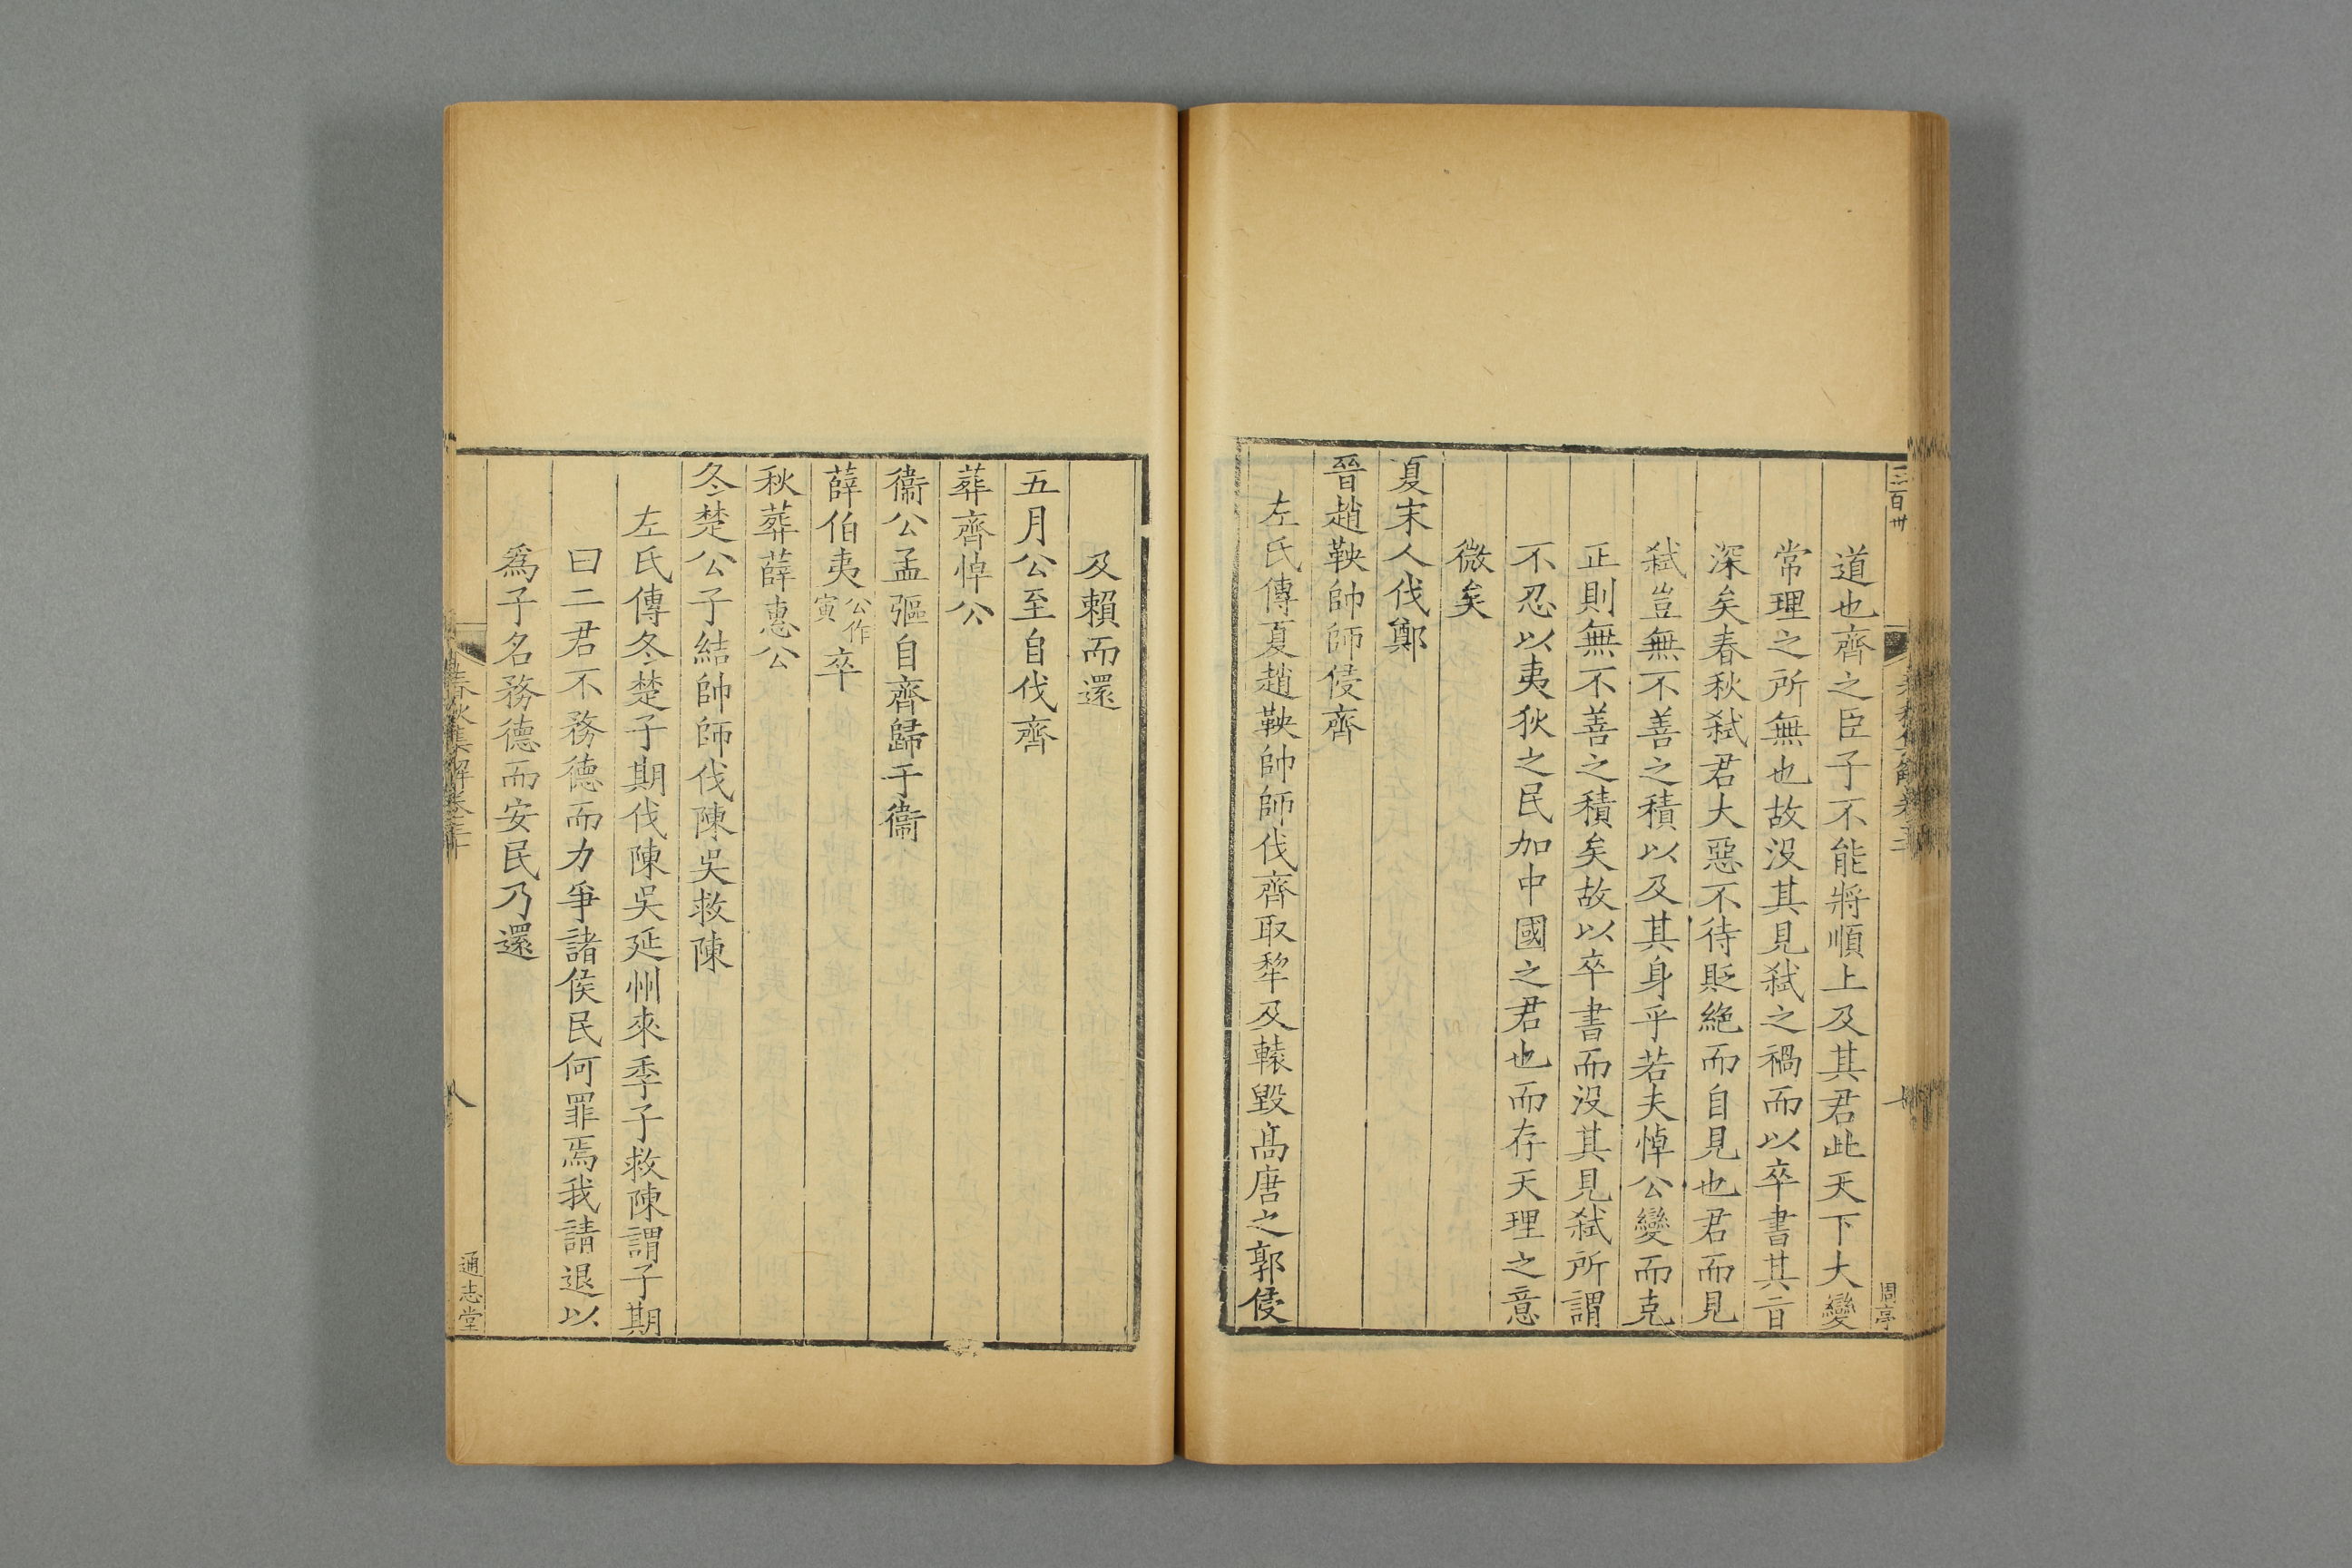 三百卅
周亭
道也齊之臣子不能將順上及其君此天下大變
常理之所無也故沒其見弑之禍而以卒書其㫖
深矣春秋弑君大惡不待貶絶而自見也君而見
弑豈無不善之積以及其身乎若夫悼公變而克
正則無不善之積矣故以卒書而沒其見弑所謂
不忍以夷狄之民加中國之君也而存天理之意
微矣
夏宋人伐鄭
晉趙鞅帥師侵齊
左氏傳夏趙鞅帥師伐齊取犂及轅毀髙唐之郭侵
及賴而還
五月公至自伐齊
葬齊悼公
衞公孟彄自齊歸于衞
薛伯夷公作寅卒
秋葬薛惠公
冬楚公子結帥師伐陳吳救陳
左氏傳冬楚子期伐陳吳延州來季子救陳謂子期
曰二君不務德而力爭諸侯民何罪焉我請退以
爲子名務德而安民乃還
春秋集解卷三十
八
通志堂